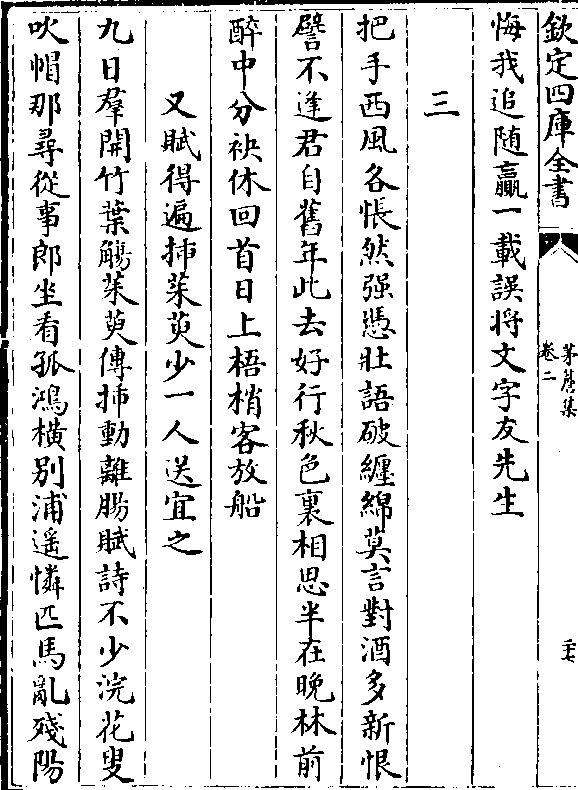 欽定四庫全書
茅簷集
卷二
三七
悔我追随贏一載誤將文字友先生
三
把手西風各悵然强憑壯語破纏綿莫言對酒多新恨
譬不逢君自舊年此去好行秋色裏相思半在晚林前
醉中分袂休回首日上梧梢客放船
又賦得遍揷茱萸少一人送宜之
九日羣開竹葉觴茱萸傳揷動離腸賦詩不少浣花叟
吹帽那尋從事郎坐看孤鴻橫別浦遥憐匹馬亂殘陽